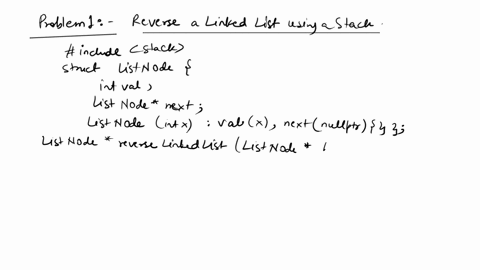 Problem 1:- Reverse a Linked List using a Stack.
# include <stack>
struct ListNode {
int val ;
ListNode* next ;
ListNode (int x) : val(x), next(nullptr) { } };
ListNode * reverse Linked List (ListNode *